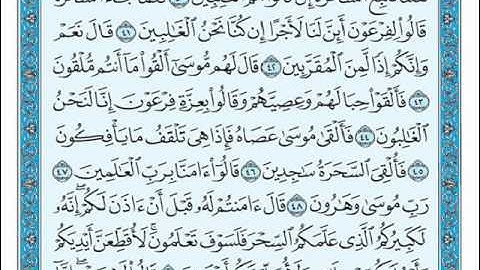 قَالُواْ لِفِرْعَوْنَ أَئِنَّ لَنَا لَأَجْرًا إِن كُنَّا نَحْنُ ٱلْغَٰلِبِينَ ٤١ قَالَ نَعَمْ
وَإِنَّكُمْ إِذًا لَّمِنَ ٱلْمُقَرَّبِينَ ٤٢ قَالَ لَهُم مُّوسَىٰٓ أَلْقُواْ مَآ أَنتُم مُّلْقُونَ
٤٣ فَأَلْقَوْاْ حِبَالَهُمْ وَعِصِيَّهُمْ وَقَالُواْ بِعِزَّةِ فِرْعَوْنَ إِنَّا لَنَحْنُ
ٱلْغَٰلِبُونَ ٤٤ فَأَلْقَىٰ مُوسَىٰ عَصَاهُ فَإِذَا هِىَ تَلْقَفُ مَا يَأْفِكُونَ
٤٥ فَأُلْقِىَ ٱلسَّحَرَةُ سَٰجِدِينَ ٤٦ قَالُوٓاْ ءَامَنَّا بِرَبِّ ٱلْعَٰلَمِينَ ٤٧
رَبِّ مُوسَىٰ وَهَٰرُونَ ٤٨ قَالَ ءَامَنتُمْ لَهُۥ قَبْلَ أَنْ ءَاذَنَ لَكُمْ إِنَّهُۥ
لَكَبِيرُكُمُ ٱلَّذِى عَلَّمَكُمُ ٱلسِّحْرَ فَلَسَوْفَ تَعْلَمُونَ لَأُقَطِّعَنَّ أَيْدِيَكُمْ